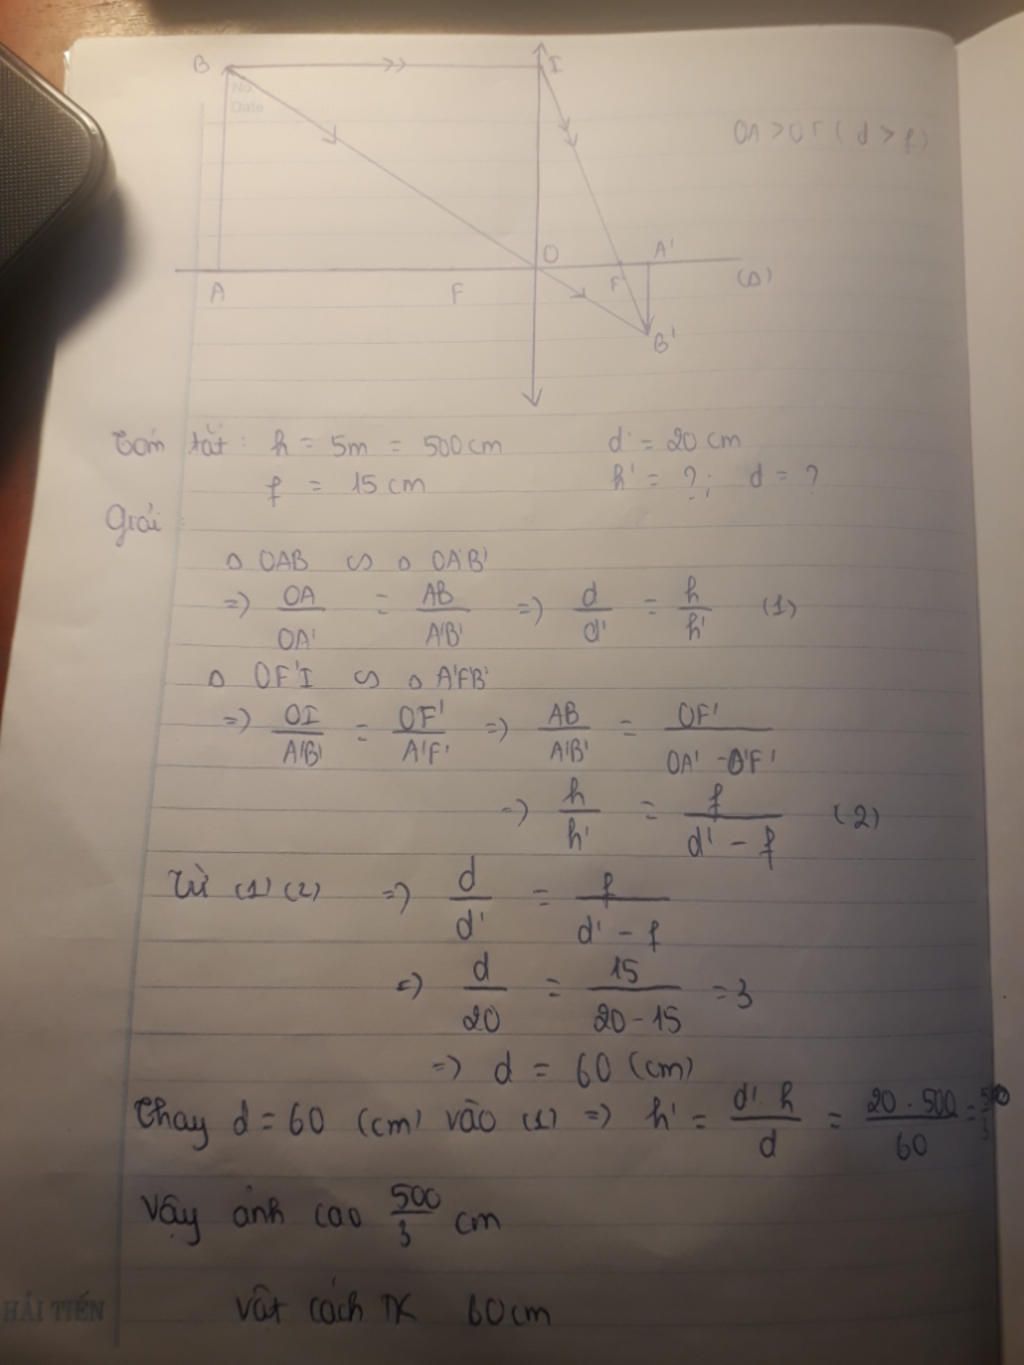 B
I
No.
Date
OA > OF (d > f)
O
A'
A
F
F'
(Δ)
B'
Tóm tắt: h = 5m = 500 cm
d' = 20 cm
f = 15 cm
h' = ?; d = ?
Giải:
Δ OAB ∽ Δ OA'B'
=> OA/OA' = AB/A'B' => d/d' = h/h' (1)
Δ OF'I ∽ Δ A'F'B'
=> OI/A'B' = OF'/A'F' => AB/A'B' = OF'/OA' - OF'
=> h/h' = f/d' - f (2)
Từ (1) (2) => d/d' = f/d' - f
=> d/20 = 15/20 - 15 = 3
=> d = 60 (cm)
Thay d = 60 (cm) vào (1) => h' = d'. h/d = 20 . 500/60 = 500/3
Vậy ảnh cao 500/3 cm
vật cách TK 60 cm
HẢI TIẾN